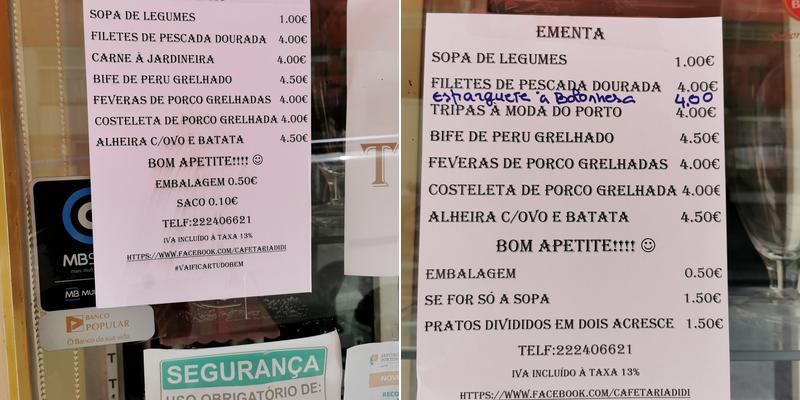 SOPA DE LEGUMES 1.00€
FILETES DE PESCADA DOURADA 4.00€
CARNE À JARDINEIRA 4.00€
BIFE DE PERU GRELHADO 4.50€
FEVERAS DE PORCO GRELHADAS 4.00€
COSTELETA DE PORCO GRELHADA 4.00€
ALHEIRA C/OVO E BATATA 4.50€
BOM APETITE!!!! ☺
EMBALAGEM 0.50€
SACO 0.10€
TELF:222406621
IVA INCLUÍDO À TAXA 13%
HTTPS://WWW.FACEBOOK.COM/CAFETARIADIDI
#VAIFICARTUDOBEM
MB
MB
BANCO
POPULAR
O Banco da sua vida
SEGURANÇA
USO OBRIGATÓRIO DE:
EMENTA
SOPA DE LEGUMES 1.00€
FILETES DE PESCADA DOURADA 4.00€
esparguete à Bolonhesa 4,00
TRIPAS À MODA DO PORTO 4.00€
BIFE DE PERU GRELHADO 4.50€
FEVERAS DE PORCO GRELHADAS 4.00€
COSTELETA DE PORCO GRELHADA 4.00€
ALHEIRA C/OVO E BATATA 4.50€
BOM APETITE!!!! ☺
EMBALAGEM 0.50€
SE FOR SÓ A SOPA 1.50€
PRATOS DIVIDIDOS EM DOIS ACRESCE 1.50€
TELF:222406621
IVA INCLUÍDO À TAXA 13%
HTTPS://WWW.FACEBOOK.COM/CAFETARIADIDI